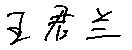 王君兰